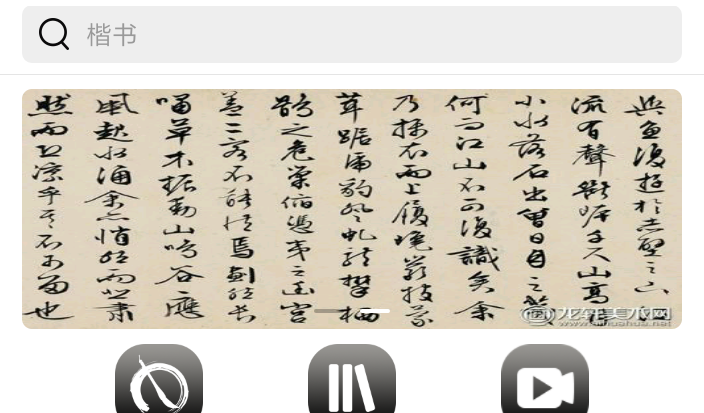 楷书
與魚復遊於赤壁之下江
流有聲斷岸千尺山高月
小水落石出曾日月之幾
何而江山不可復識矣余
乃攝衣而上履巉巖披蒙
茸踞虎豹登虬龍攀栖
鶻之危巢俯馮夷之幽宮
蓋二客不能從焉劃然長
嘯草木振動山鳴谷應
風起水涌余亦悄然而悲肅
然而恐凜乎其不可留也
龙轩美术网